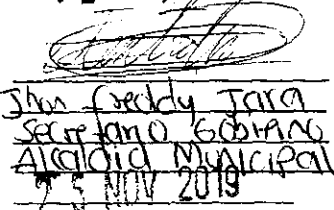 Jhon Freddy Jara
Secretario GOBIERNO
Alcaldia Municipal
25 NOV 2019